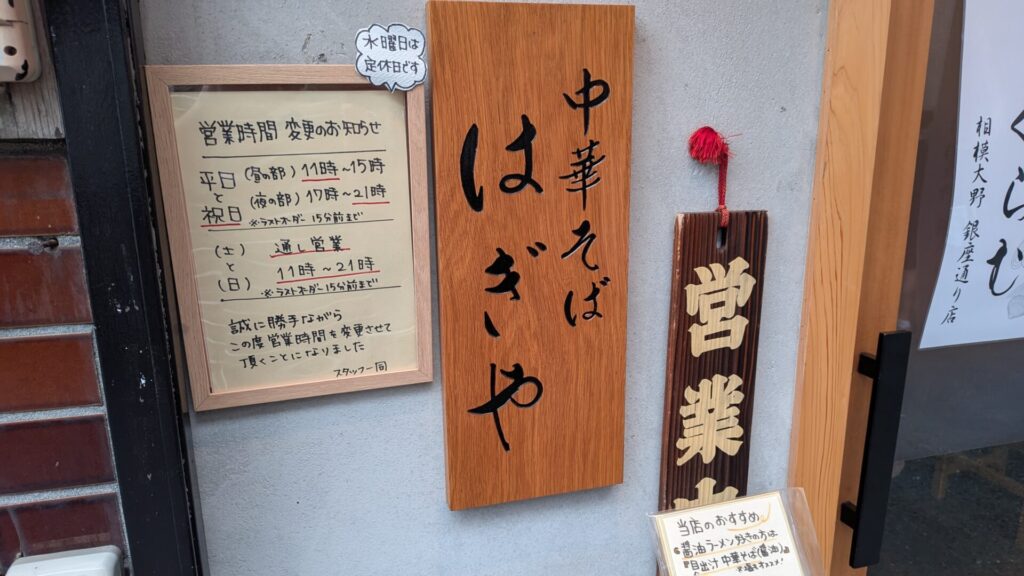 水曜日は
定休日です
営業時間 変更のお知らせ
平日と祝日
(昼の部) 11時〜15時
(夜の部) 17時〜21時
※ラストオーダー15分前まで
(土)と(日)
通し営業
11時〜21時
※ラストオーダー15分前まで
誠に勝手ながら
この度営業時間を変更させて
頂くことになりました
スタッフ一同
中華そば
はぎや
営業中
当店のおすすめ
醤油ラーメン好きの方は
中華そば(醤油)
くらむ
相模大野 銀座通り店